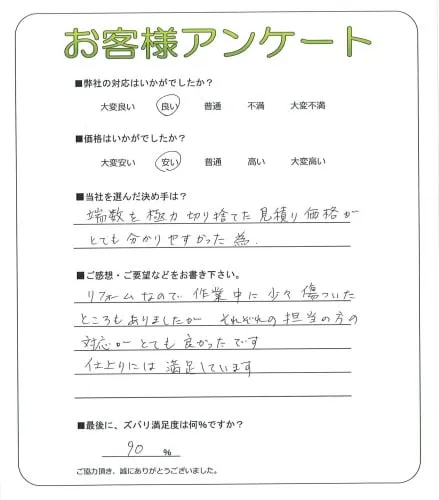 お客様アンケート
■弊社の対応はいかがでしたか?
大変良い 良い 普通 不満 大変不満
■価格はいかがでしたか?
大変安い 安い 普通 高い 大変高い
■当社を選んだ決め手は?
端数を極力切り捨てた見積り価格が
とても分かりやすかった為.
■ご感想・ご要望などをお書き下さい。
リフォームなので作業中に少々傷ついた
ところもありましたが それぞれの担当の方の
対応がとても良かったです
仕上りには満足しています
■最後に、ズバリ満足度は何%ですか?
90 %
ご協力頂き、誠にありがとうございました。